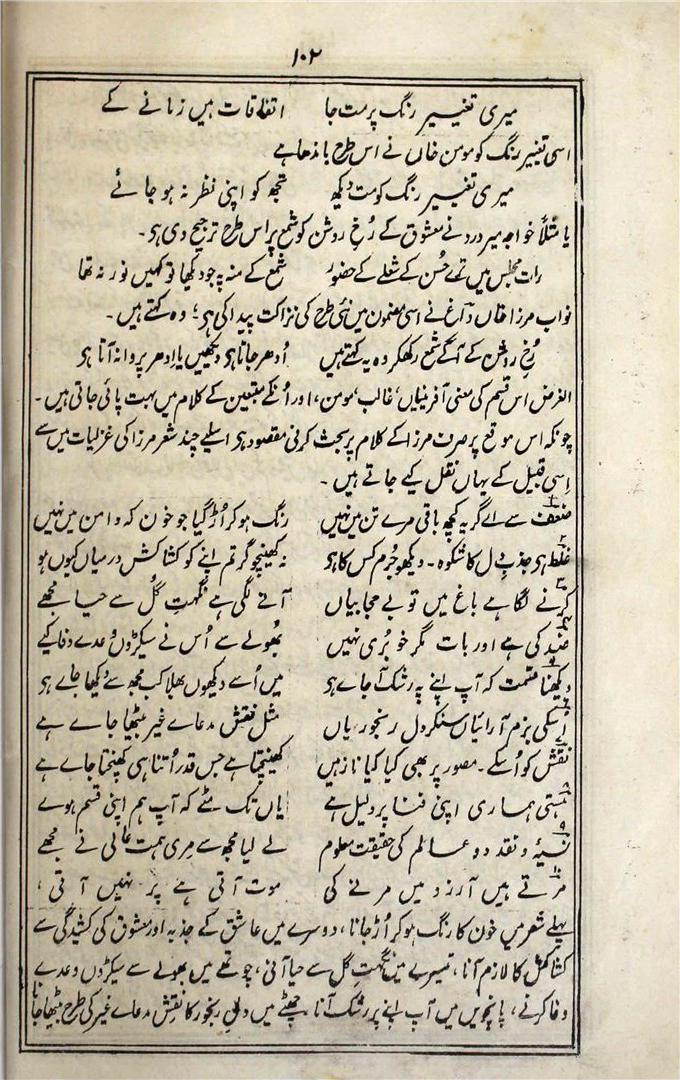 ۱۰۲
میری تغییر رنگ پر مت جا اتفاقات ہیں زمانے کے
اسی تغییر رنگ کو مومن خاں نے اس طرح باندھا ہے
میری تغییر رنگ کو مت دیکھ تجھ کو اپنی نظر نہ ہو جائے
یا مثلاً خواجہ میر درد نے معشوق کے رُخ روشن کو شمع پر اس طرح ترجیح دی ہی۔
رات مجلس میں ترے حُسن کے شعلے کے حضور شمع کے منہ پہ جو دیکھا تو کہیں نور نہ تھا
نواب مرزا خاں داغ نے اسی مضمون میں نئی طرح کی نزاکت پیدا کی ہی؛ وہ کہتے ہیں۔
رُخِ روشن کے آگے شمع رکھکر وہ یہ کہتے ہیں اُدھر جاتا ہی دیکھیں یا اِدھر پروانہ آتا ہی
الغرض اس قسم کی معنی آفرینیاں، غالب، مومن، اور اُنکے متبعین کے کلام میں بہت پائی جاتی ہیں۔
چونکہ اس موقع پر صرف مرزا کے کلام پر بحث کرنی مقصود ہی اسلیے چند شعر مرزا کی غزلیات میں سے
اِسی قبیل کے یہاں نقل کیے جاتے ہیں۔
ضعف سے اے گریہ کچھ باقی مرے تن میں نہیں رنگ ہو کر اُڑ گیا جو خون کہ دامن میں نہیں
غلط ہی جذبِ دل کا شکوہ۔ دیکھو جُرم کس کا ہی نہ کھینچو گر تم اپنے کو کشاکش درمیاں کیوں ہو
کرنے لگا ہے باغ میں تو بے حجابیاں آنے لگی ہے نگہتِ گُل سے حیا مجھے
ضد کی ہے اور بات مگر خو بُری نہیں بھُولے سے اُس نے سیکڑوں وعدے وفا کیے
دیکھنا قسمت کہ آپ اپنے پہ رشک آ جاے ہی میں اُسے دیکھوں بھلا کب مجھ سے دیکھا جاے ہی
اُسکی بزم آرائیاں سنکر دل رنجور یاں مثل نقش مدعاے غیر بیٹھا جاے ہے
نقش کو اُسکے۔ مصور پر بھی کیا کیا ناز ہیں کھینچتا ہے جس قدر اُتنا ہی کھنچتا جاے ہے
ہستی ہماری اپنی فنا پر دلیل ہے یاں تک مٹے کہ آپ ہم اپنی قسم ہوے
نسیۂ و نقد دو عالم کی حقیقت معلوم لے لیا مجھ سے مری ہمت عالی نے مجھے
مرتے ہیں آرزو میں مرنے کی موت آتی ہے پر نہیں آتی،
پہلے شعر میں خون کا رنگ ہو کر اُڑ جانا، دوسرے میں عاشق کے جذبہ اور معشوق کی کشیدگی سے
کشاکش کا لازم آنا، تیسرے میں نگہتِ گل سے حیا آنی، چوتھے میں بھولے سے سیکڑوں وعدے
وفا کرنے، پانچویں میں آپ اپنے پر رشک آنا، چھٹے میں دلِ رنجور کا نقشِ مدعاے غیر کی طرح بیٹھا جانا